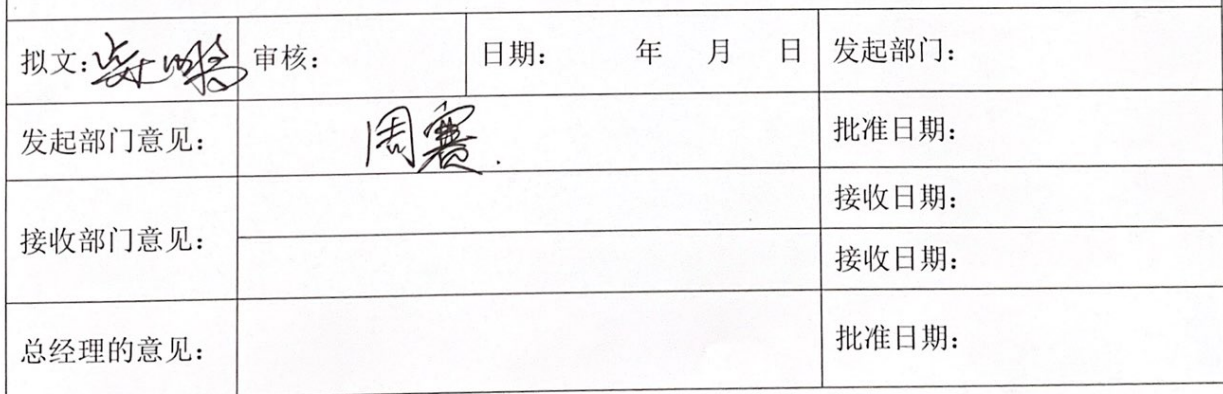 拟文： 审核： 日期： 年 月 日 发起部门：
发起部门意见： 周赛. 批准日期：
接收部门意见： 接收日期：
接收日期：
总经理的意见： 批准日期：